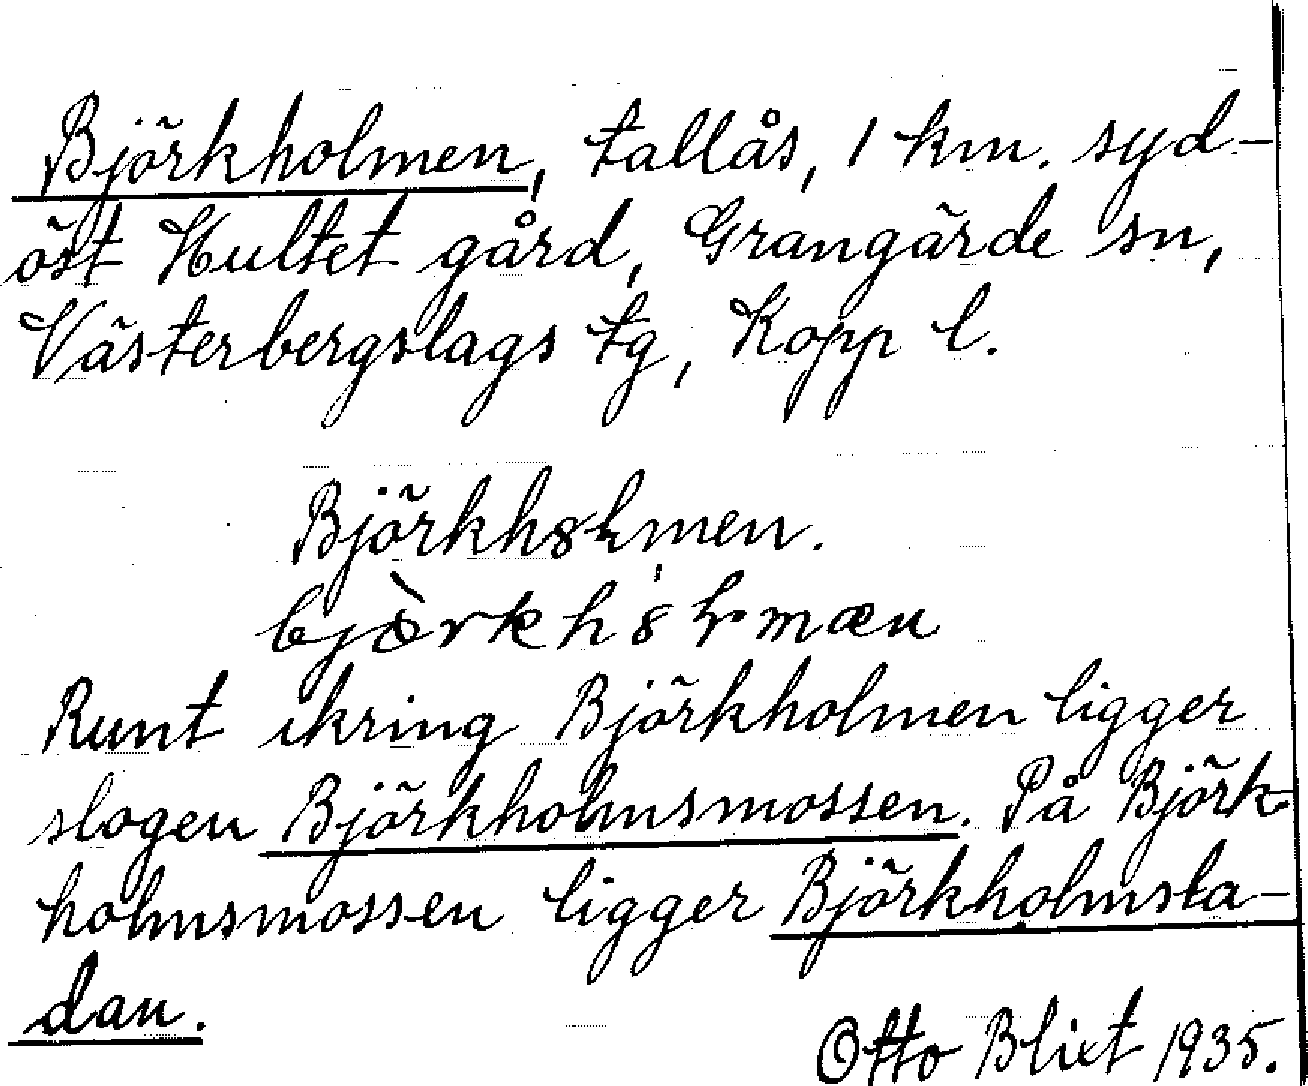 Björkholmen, tallås, 1 km. syd-
öst Hultet gård, Grangärde sn,
Västerbergslags tg, Kopp l.
Runt ikring Björkholmen ligger
slogen Björkholmsmossen. På Björk-
holmsmossen ligger Björkholmsla-
dan.
Otto Blixt 1935.